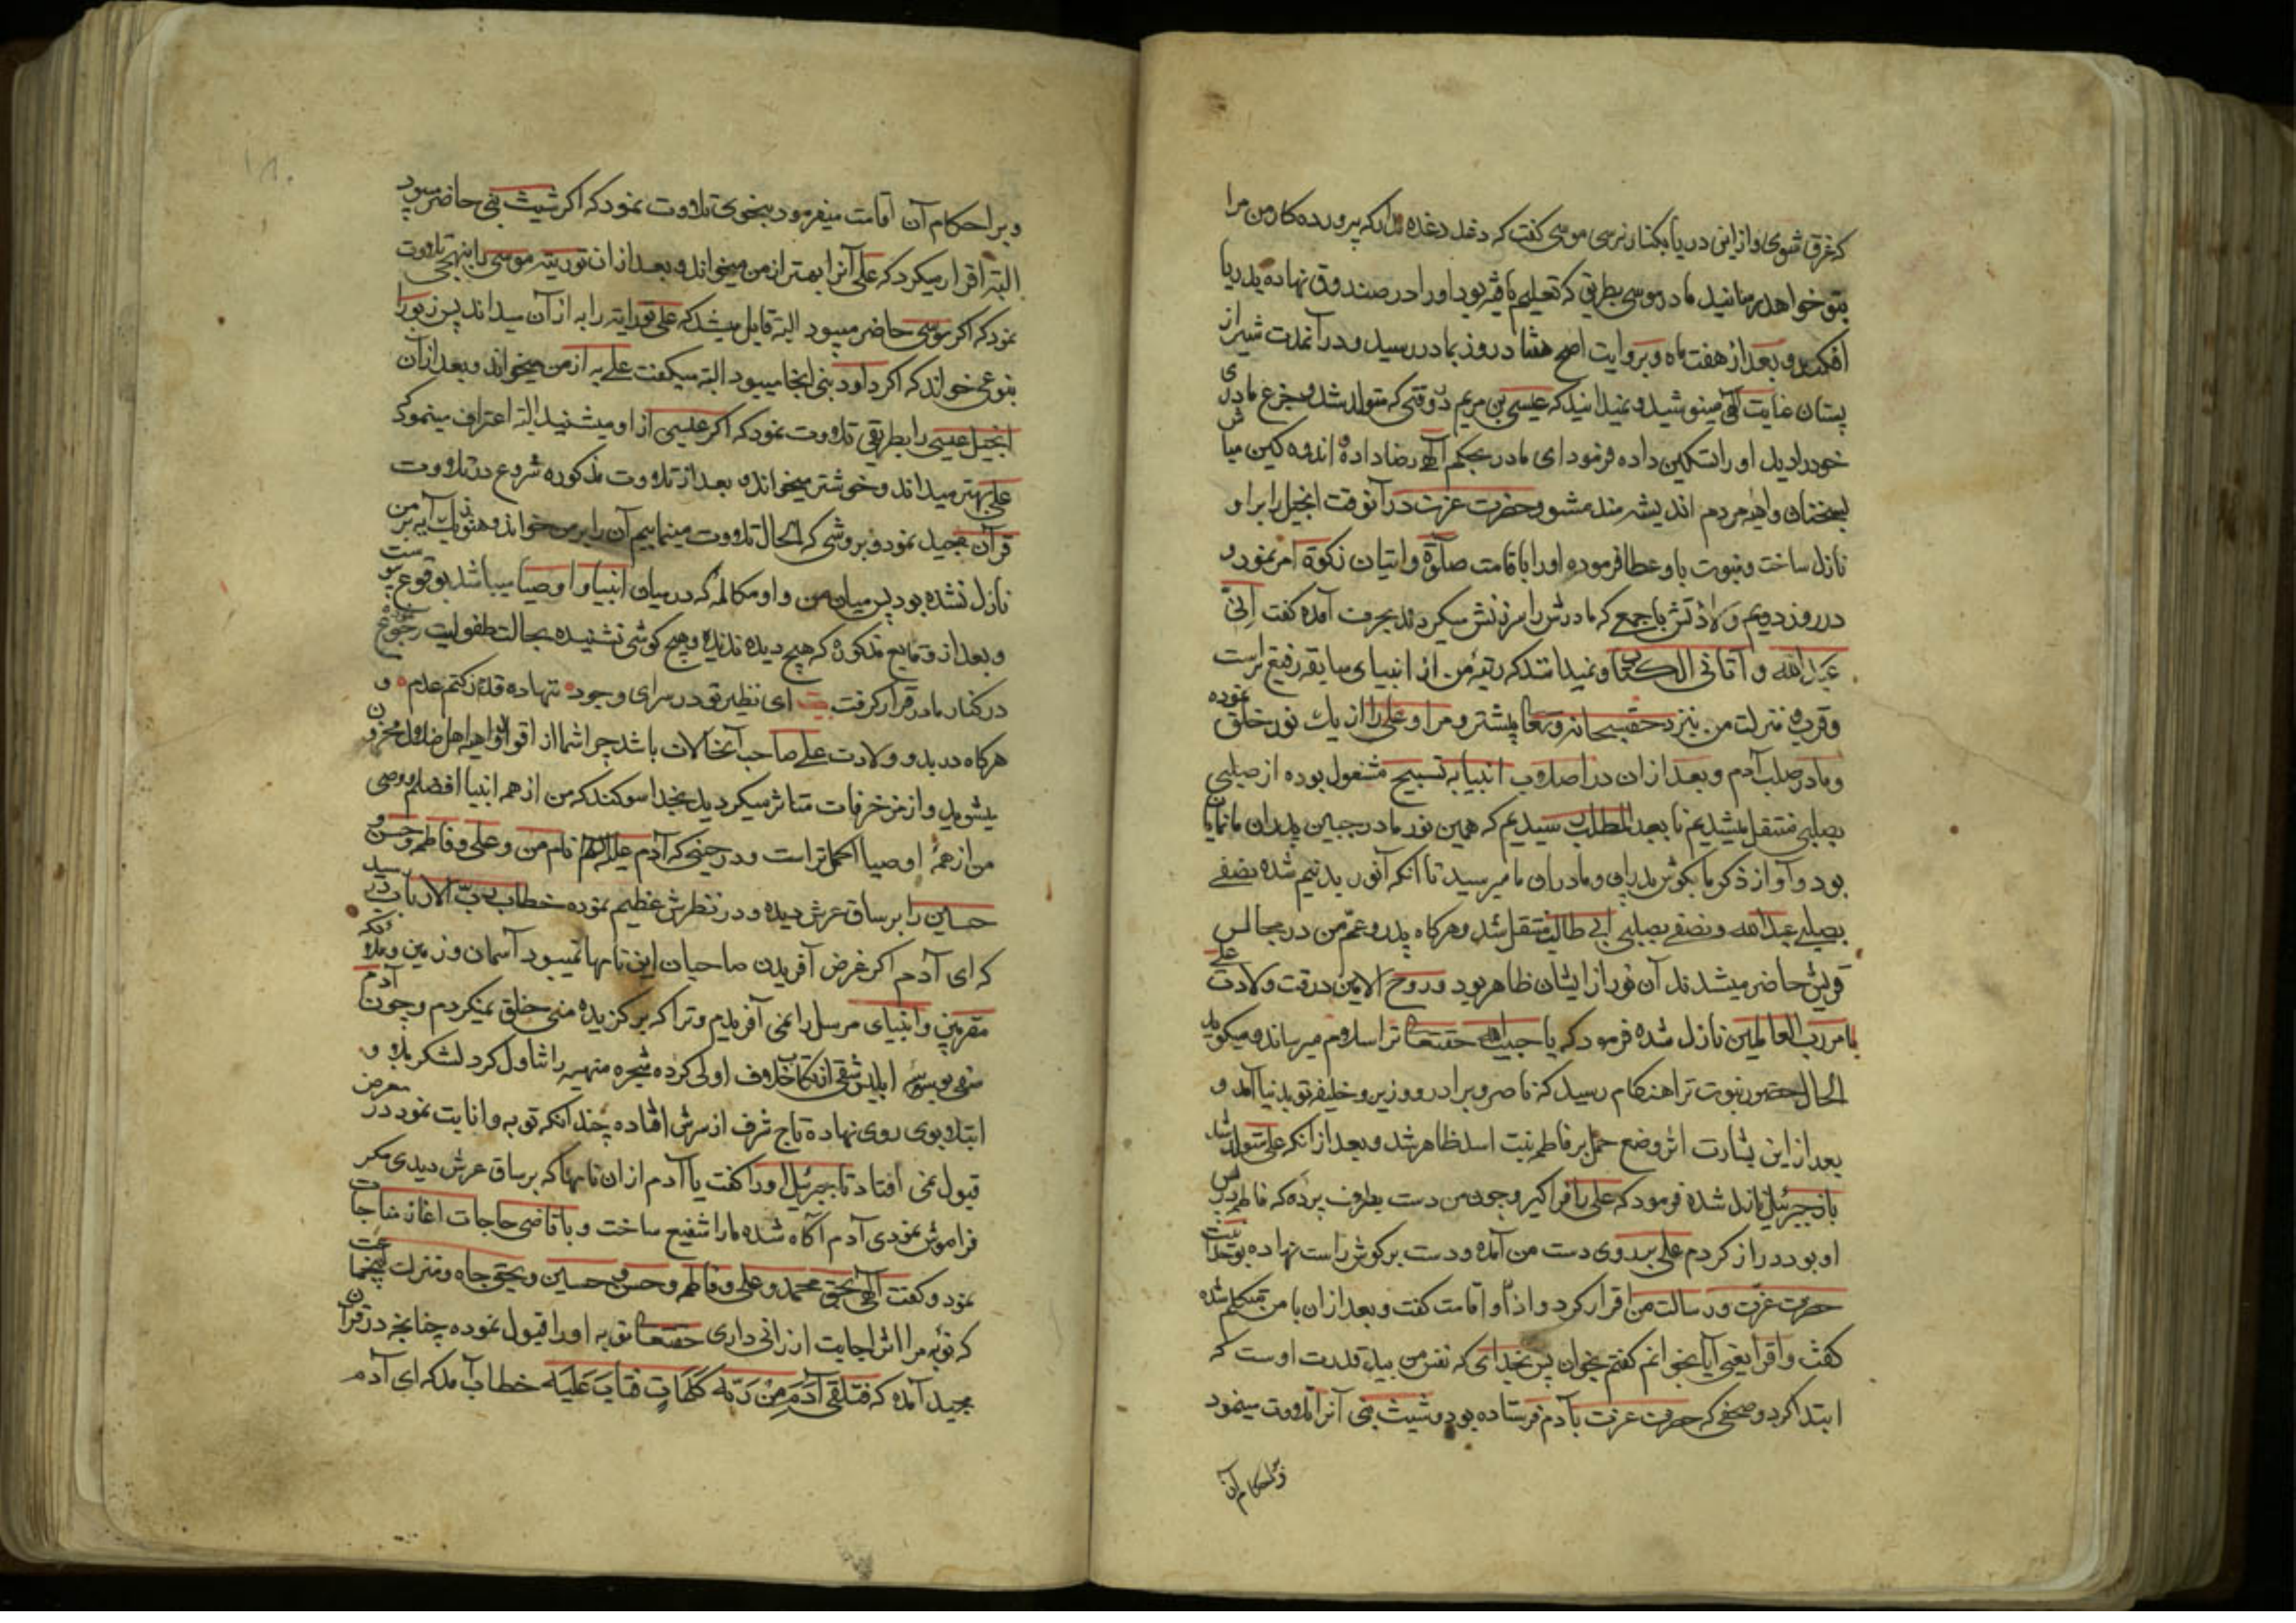 که غرق شوی و ازین دریا بکنار نرسی موسی گفت که دغدغه مدار که پروردکار من مرا
بتو خواهد رسانید مادر موسی بطریقی که تعلیم یافته بود او را در صندوق نهاده بدریا
افکند و بعد از هفت ماه و بروایت اصح هفتاد روز بمادر رسید و در آنمدت شیر از
پستان عنایت الهی مینوشید و نمیدانید که عیسی بن مریم در وقتی که متولد شد و جزع مادری
خود را دید او را تسکین داده فرمود ای مادر بحکم الهی رضا داده اندوه کین مباش
بسخنان واهیه مردم اندیشه مند مشو و حضرت عزت در آنوقت انجیل را بر او
نازل ساخت و نبوت باو عطا فرموده او را باقامت صلوة و ایتان زکوة امر نمود و
در روز دویم ولادتش با جمعی که مادرش را سرزنش میکردند بحرف آمده گفت اِنّی
عبدالله و آتانی الکتاب و نمیدانند که رتبهٔ من از انبیای سابقه رفیع تر است
و قرب و منزلت من بنزد حق سبحانه و تعالی بیشتر و مرا و علی را از یک نور خلق نموده
و ما در صلب آدم و بعد از ان در اصلاب انبیا به تسبیح مشغول بوده از صلبی
بصلبی منتقل میشدیم تا بعبد المطلب رسیدیم که همین نور ما در جبین پدران ما نمایان
بود و آواز ذکر ما بکوش پدران و مادران ما میرسید تا آنکه آنور بدو نیم شده نصفی
بصلب عبدالله و نصفی بصلب ابی طالب منتقل شد و هرکاه پدر و عم من در مجالس
قریش حاضر میشدند آن نور از ایشان ظاهر بود و روح الامین در وقت ولادت علی
بامر رب العالمین نازل شده فرمود که یا حبیب الله حقتعالی ترا سلام میرساند و میکوید
الحال ظهور نبوت ترا هنکام رسید که ناصر و برادر و وزیر و خلیفه تو بدنیا آمد و
بعد از این بشارت اثر وضع حمل بر فاطمه بنت اسد ظاهر شد و بعد از آنکه علی متولد شد
باز جبرئیل نازل شده فرمود که علی را فراکیر و چون من دست بطرف پرده که فاطمه در پس
او بود دراز کردم علی بر روی دست من آمده و دست بر کوش راست نهاده بوحدانیت
حضرت عزت و رسالت من اقرار کرد و اذان و اقامت گفت و بعد از ان با من متکلم شده
گفت و اقرا یعنی آیا بخوانم گفتم بخوان پس بخدای که نفس من بید قدرت اوست که
ابتدا کرد و صحفی که حضرت عزت بآدم فرستاده بود و شیث نبی آنرا تلاوت مینمود
و بر احکام آن
۱۸۰
و بر احکام آن اقامت میفرمود بنحوی تلاوت نمود که اکر شیث نبی حاضر میبود
البته اقرار میکرد که علی آنرا بهتر از من میخواند و بعد از ان توریته موسی را بنهجی تلاوت
نمود که اکر موسی حاضر میبود البته قایل میشد که علی توراته را به از آن میداند پس زبور را
بنوعی خواند که اکر داود نبی اینجا میبود البته میکفت علی به از من میخواند و بعد از آن
انجیل عیسی را بطریقی تلاوت نمود که اکر عیسی از او میشنید البته اعتراف مینمود که
علی بهتر میداند و خوشتر میخواند و بعد از تلاوت مذکوره شروع در تلاوت
قرآن مجید نمود و بروشی که الحال تلاوت مینماییم آن را بر من خواند و هنوز یک آیه بر من
نازل نشده بود پس میان من و او مکالمه که در میان انبیا و اوصیا میباشد بوقوع پیوست
و بعد از وقایع مذکوره که هیچ دیده ندیده و هیچ کوشی نشنیده بحالت طفولیت رجوع نموده
در کنار مادر قرار کرفت بیت ای نظیر تو در سرای وجود ننهاده قدم ز کتم عدم و
هرکاه در بدو ولادت علی صاحب آنحالات باشد چرا شما از اقوال واهیه اهل ضلال محزون
میشوید و از مزخرفات متاثر میکردید بخدا سوکند که من از همه انبیا افضلم و وصی
من از همه اوصیا اکمل تر است و در حینی که آدم علیه السلام نام من و علی و فاطمه و حسن و
حسین را بر ساق عرش دیده و در نظرش عظیم نموده خطاب رب الارباب در رسید
که ای آدم اکر غرض آفریدن صاحبان این نامها نمیبود آسمان و زمین و ملائکه
مقربین و انبیای مرسل را نمی آفریدم و ترا که برکزیده منی خلق نمیکردم و چون آدم
صفی بوسوسه ابلیس شقی ارتکاب خلاف اولی کرده شجره منهیه را تناول کرد لشکر بلا و
ابتلا بوی روی نهاده تاج شرف از سرش افتاده چندانکه توبه و انابت نمود در معرض
قبول نمی افتاد تا جبرئیل او را گفت یا آدم از ان نامها که بر ساق عرش دیدی مکر
فراموش نمودی آدم آکاه شده ما را شفیع ساخت و با قاضی حاجات اغاز مناجات
نمود و گفت الهی بحق محمد و علی و فاطمه و حسن و حسین و بحق جاه و منزلت پنج تن
که توبه مرا اثر اجابت ارزانی داری حقتعالی توبه او را قبول نموده چنانچه در قرآن
مجید آمده که فَتَلَقَّى آدَمَ مِنْ رَبِّهِ کَلِمَاتٍ فَتَابَ عَلَیْهِ خطاب آمد که ای آدم